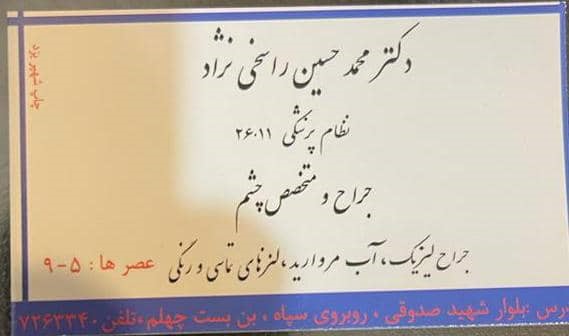 دکتر محمد حسین راسخی نژاد
نظام پزشکی ۲۶۰۱۱
جراح و متخصص چشم
جراح لیزیک، آب مروارید، لنزهای تماسی و رنگی
عصر ها: ۵-۹
درس: بلوار شهید صدوقی، روبروی سپاه، بن بست چهلم، تلفن ۷۲۶۳۳۴۰
چاپ شهر یزد